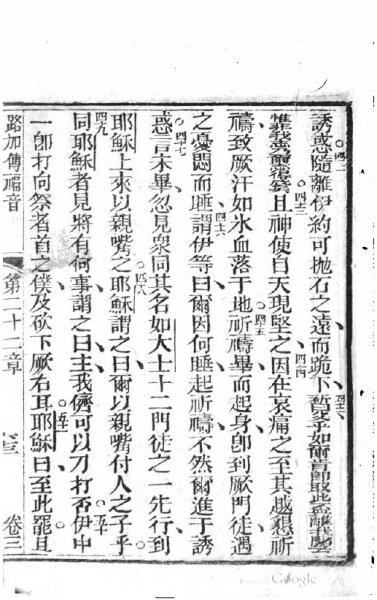 誘惑隨離伊約可抛石之遠而跪下 暫 乎如爾肯卽取此盃離我
惟 且神使自天現堅之因在哀痛之至其越懇祈
禱致厥汗如氷血落于地祈禱畢而起身卽到厥門徒遇
之憂悶而睡謂伊等曰爾因何睡起祈禱不然爾進于誘
惑言未畢忽見衆同其名如大士十二門徒之一先行到
耶穌上來以親嘴之耶穌謂之曰爾以親嘴付人之子乎
同耶穌者見將有何事謂之曰主我儕可以刀打否伊中
一卽打向祭者首之僕及砍下厥右耳耶穌曰至此罷且
路加傳福音 第二十二章 卷三
四二
四三
四四
四五
四六
四七
四八
四九
五十
五一
Google